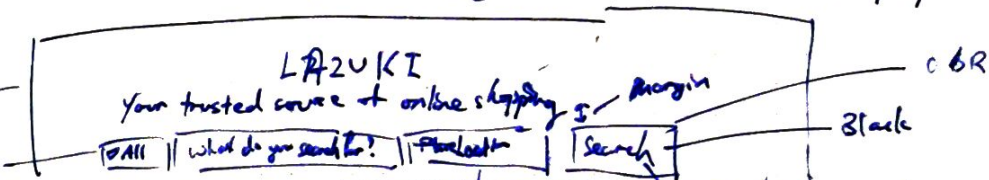 LAZUKI
Your trusted source of online shopping
Margin
All
what do you search for?
Search
Black